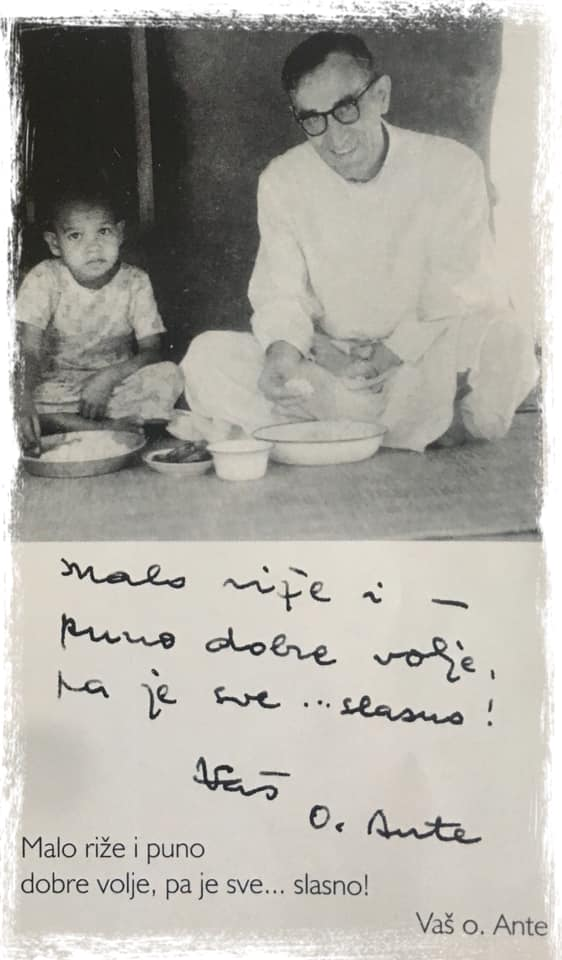 Malo riže i –
puno dobre volje,
pa je sve ... slasno!
Vaš
O. Ante
Malo riže i puno
dobre volje, pa je sve... slasno!
Vaš o. Ante